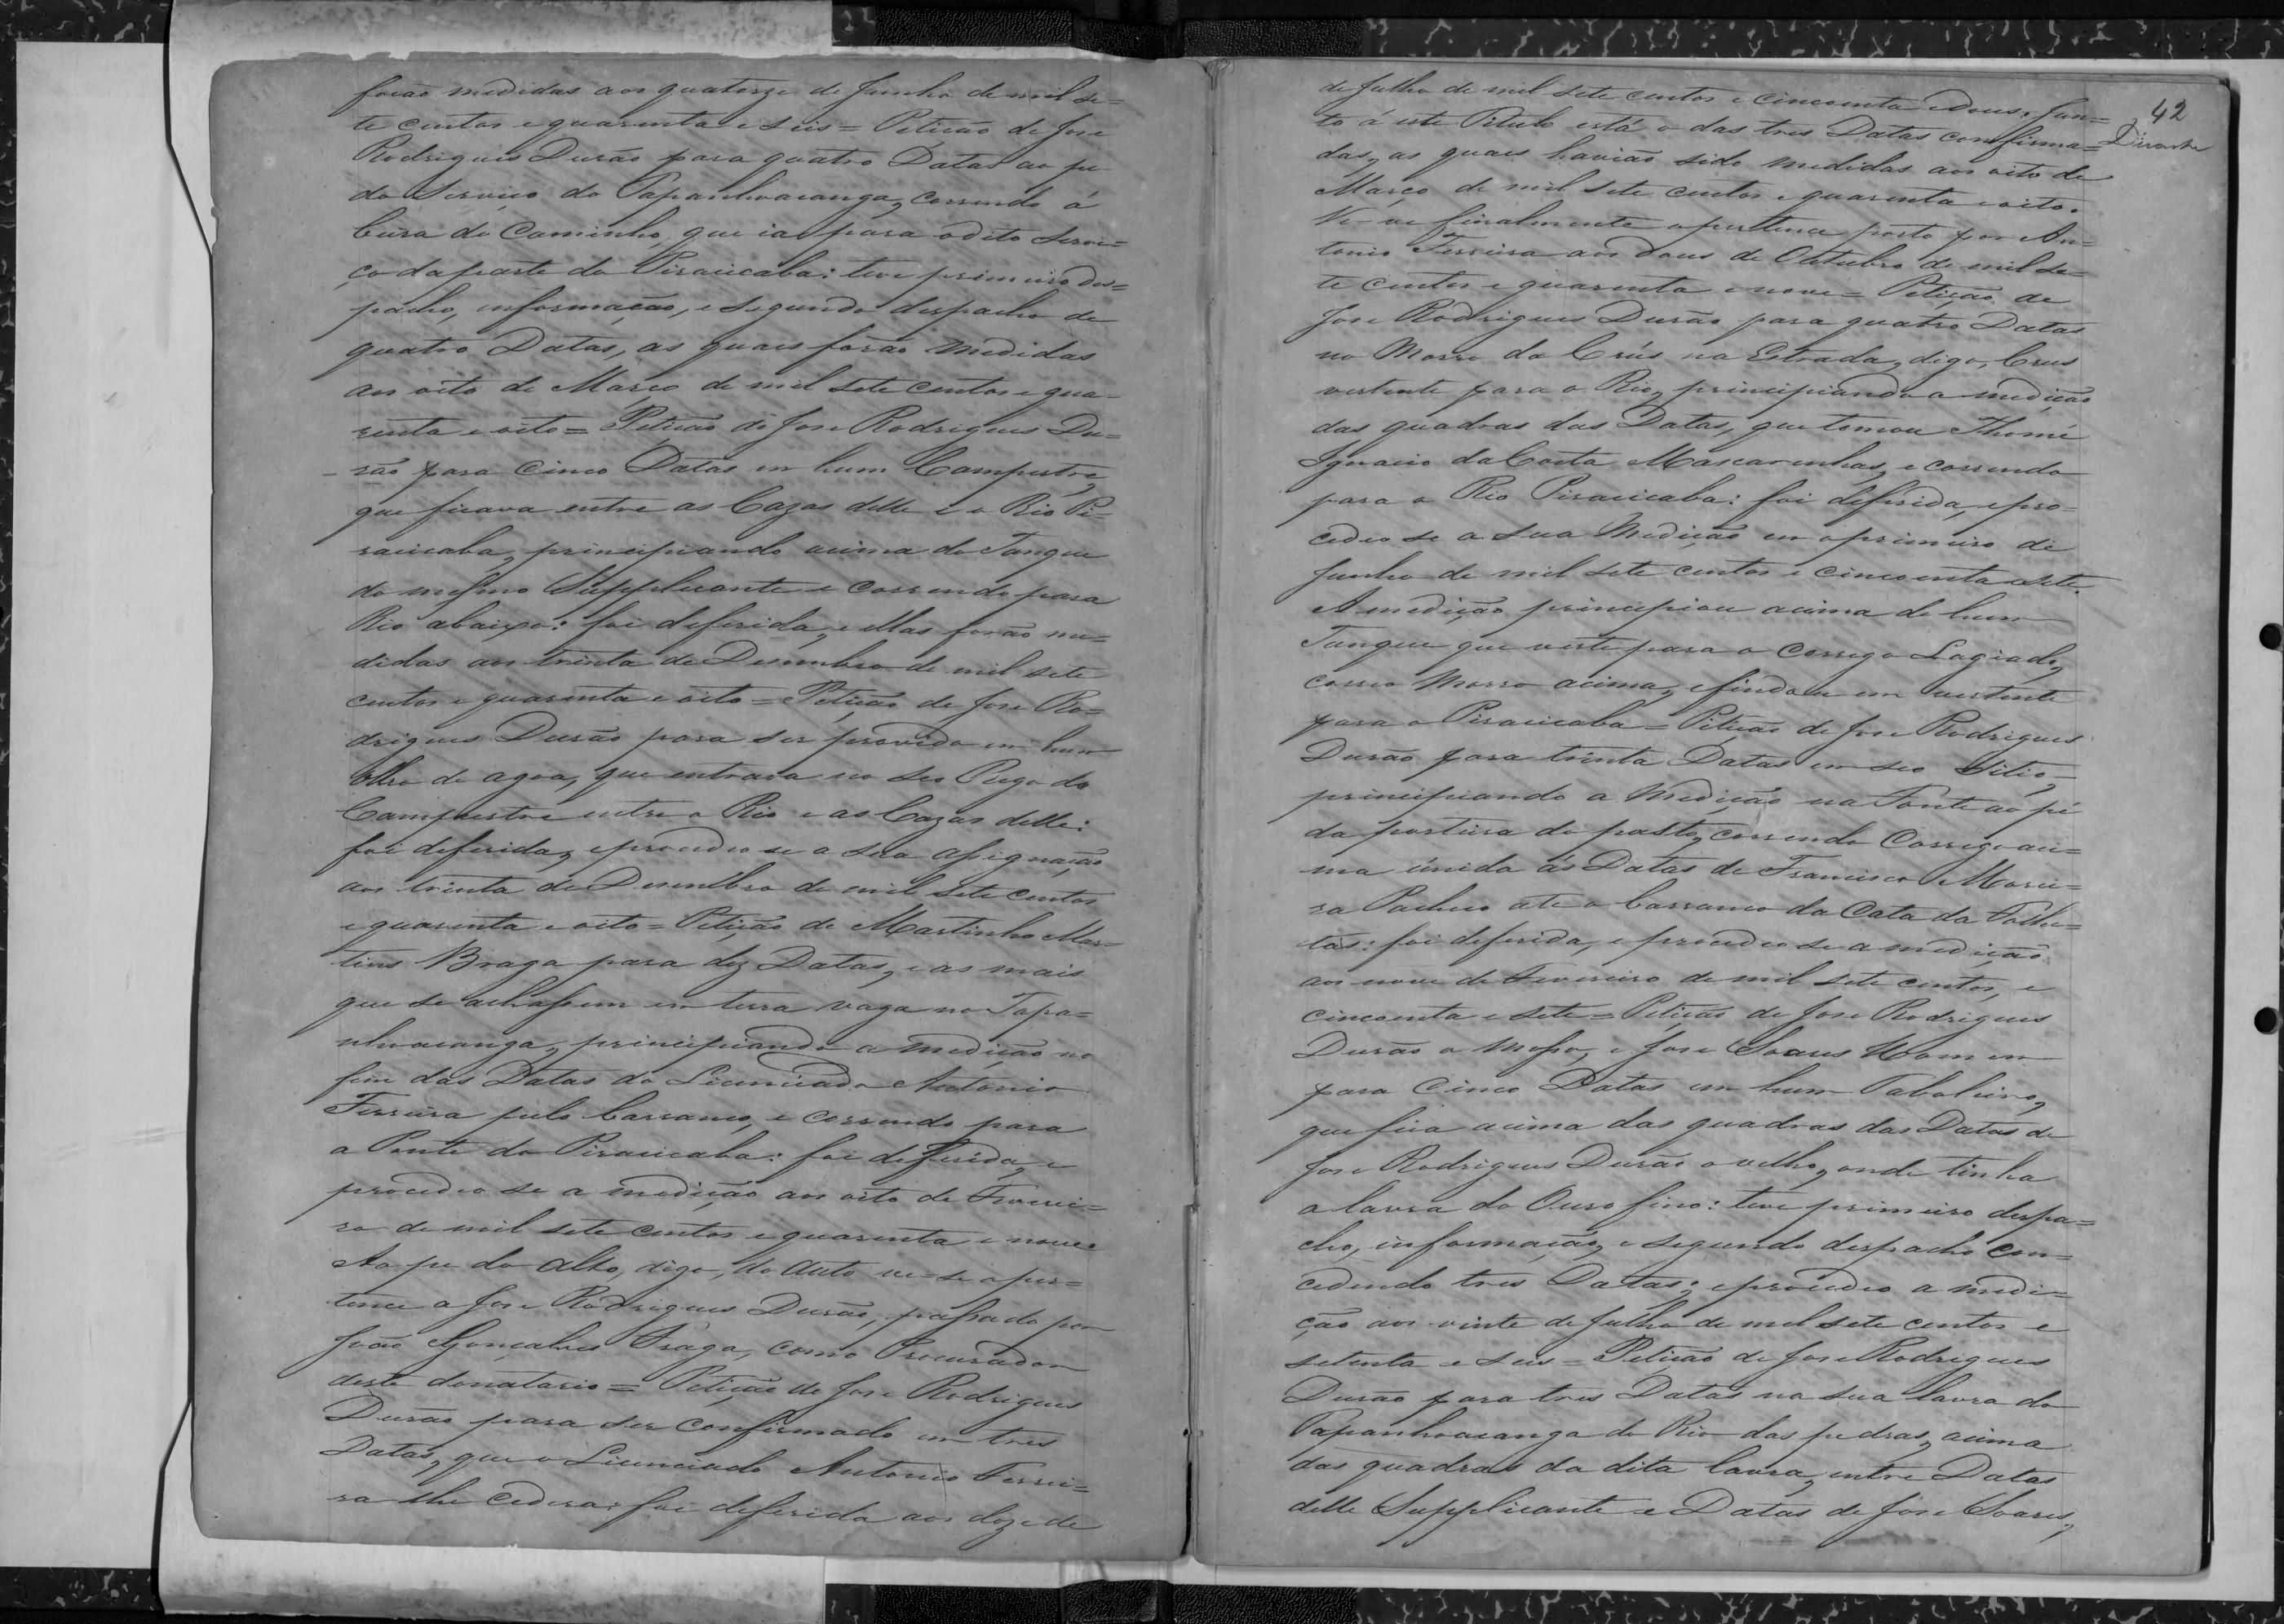 forão medidas aos quatorze de Junho de mil se=
te centos e quarenta e seis = Petição de Jose
Rodrigues Durão para quatro Datas ao pe
do Serviço do Tapanhoacanga, correndo á
beira do Caminho, que ia para o dito Servi=
ço da parte do Piracicaba: teve primeiro des=
pacho, informação, e segundo despacho de
quatro Datas, as quais forão medidas
aos oito de Março de mil sete centos e qua=
renta e oito = Petição de Jose Rodrigues Du=
rão para Cinco Datas em hum Campestre,
que ficava entre as Cazas delle e o Rio Pi=
racicaba, principiando acima do Tanque
do mesmo Supplicante e correndo para
Rio abaixo: foi deferida, e ellas forão me=
didas aos trinta de Desembro de mil sete
centos e quarenta e oito = Petição de Jose Ro=
drigues Durão para ser provido em hum
olho de agoa, que entrava no seo Rego do
Campestre entre o Rio e as Cazas delle:
foi deferida, e procedeo se a sua asignação
aos trinta de Desembro de mil sete centos
e quarenta e oito = Petição de Martinho Mar=
tins Braga para dez Datas, e as mais
que se achassem em terra vaga no Tapa=
nhoacanga, principiando a medição no
fim das Datas do Licenciado Antonio
Ferreira pelo barranco, e correndo para
a Ponte do Piracicaba: foi deferida, e
procedeo se a medição aos oito de Feverei=
ro de mil sete centos e quarenta e nove
Ao pe do alto, digo, do auto ve=se a per=
tence a Jose Rodrigues Durão, passado por
João Gonçalves Fraga, como Procurador
deste donatario = Petição de Jose Rodrigues
Durão para ser confirmado em tres
Datas, que o Licenciado Antonio Ferrei=
ra lhe cedera: foi deferida aos doze de
42
de Julho de mil sete centos e cincoenta e dous. Jun=
to á este Titulo está o das tres Datas confirma=
das, as quais havião sido medidas aos oito de
Março de mil sete centos e quarenta e oito.
Ve-se finalmente a pertence posto por An=
tonio Ferreira aos dous de Outubro de mil se=
te centos e quarenta e nove = Petição de
Jose Rodrigues Durão para quatro Datas
no Morro da Crús na Estrada, digo, Crus
vertente para o Rio, principiando a medição
das quadras das Datas, que tomou Thomé
Ignacio da Costa Mascarenhas, e correndo
para o Rio Piracicaba: foi deferida, e pro=
cedeo se a sua Medição em o primeiro de
Junho de mil sete centos e cincoenta e sete.
A medição principiou acima de hum
Tanque que verte para o Corrego Lagiado,
correo Morro acima, e findou em vertente
para o Piracicaba = Petição de Jose Rodrigues
Durão para trinta Datas em seo Sitio
principiando a Medição na Ponte ao pé
da porteira do pasto, correndo Corrego aci=
ma únida ás Datas de Francisco Morei=
ra Pacheco ate o barranco da Cata da
foi deferida, e procedeo se a medição
aos nove de Fevereiro de mil sete centos, e
cincoenta e sete = Petição de Jose Rodrigues
Durão o Mosso, e Jose Soares Homem
para Cinco Datas em hum Taboleiro,
que fica acima das quadras das Datas de
Jose Rodrigues Durão o velho, onde tinha
a lavra do Ouro fino: teve primeiro despa=
cho, informação, e segundo despacho con=
cedendo tres Datas; e procedeo a medi=
ção aos vinte de Julho de mil sete centos e
setenta e seis = Petição de Jose Rodrigues
Durão para tres Datas na sua lavra do
Tapanhoacanga do Rio das pedras, acima
das quadras da dita lavra, entre Datas
delle Supplicante e Datas de Jose Soares,